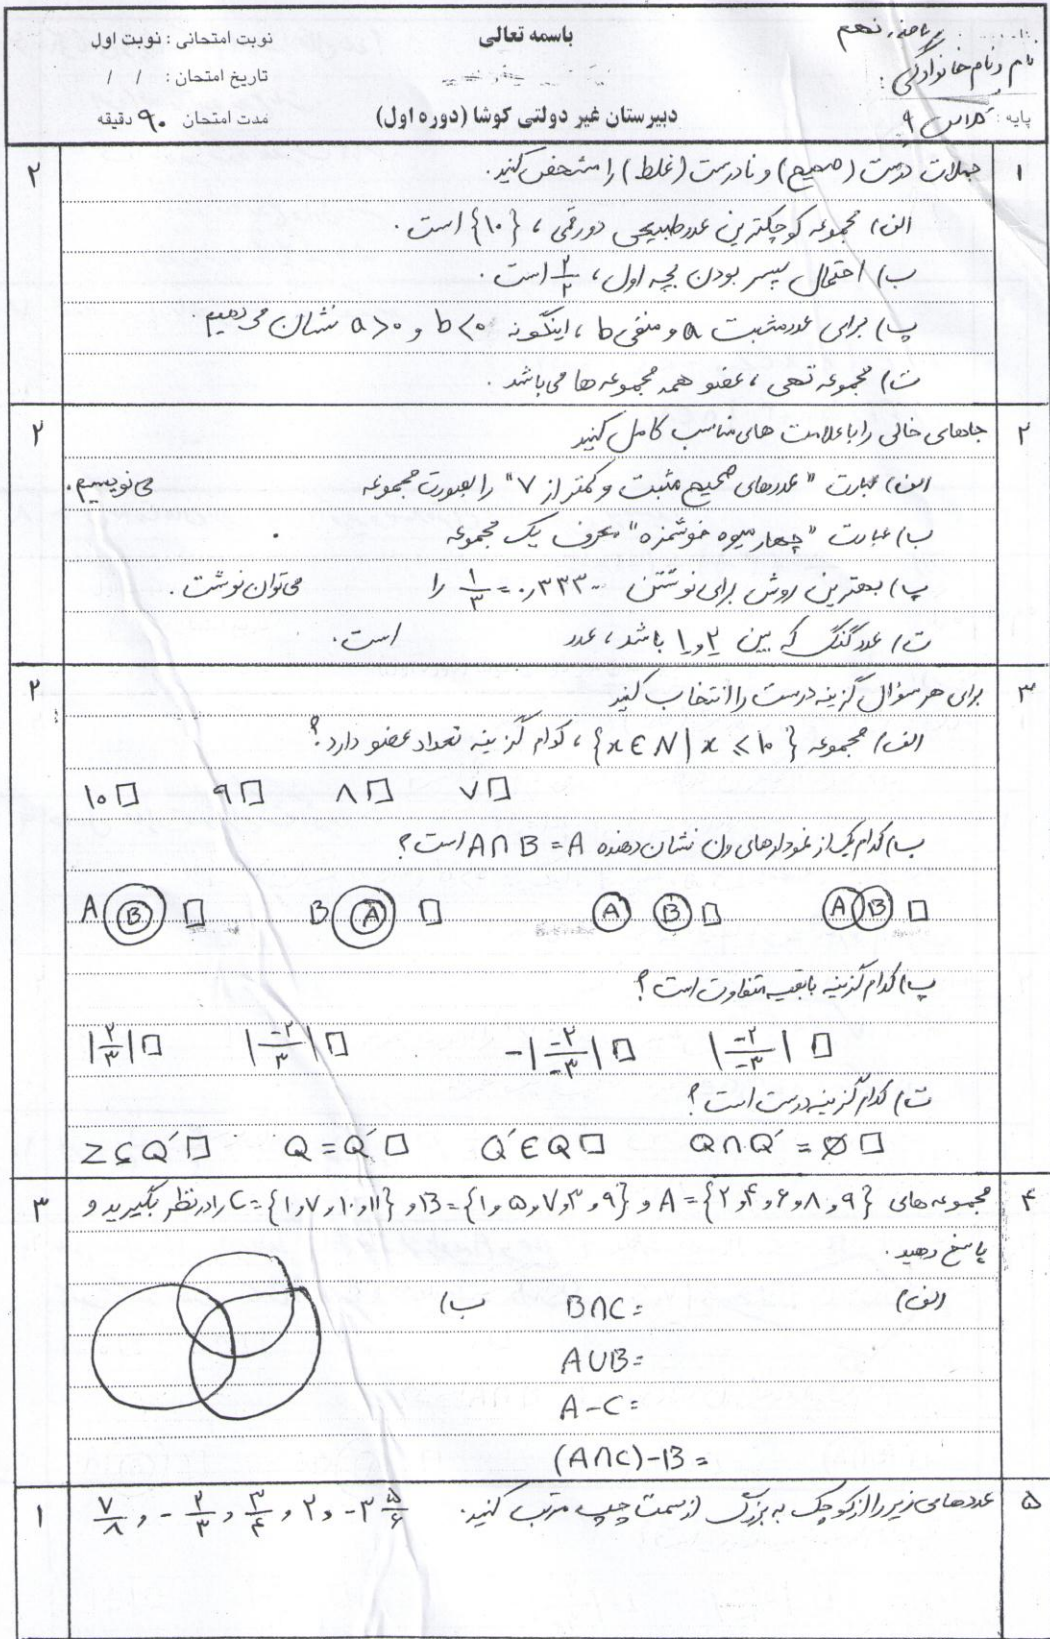 باسمه تعالی
ریاضی نهم
نام و نام خانوادگی :
پایه : کلاس ۹
دبیرستان غیر دولتی کوشا (دوره اول)
نوبت امتحانی : نوبت اول
تاریخ امتحان : / /
مدت امتحان ۹۰ دقیقه
۱ جملات درست (صحیح) و نادرست (غلط) را مشخص کنید. ۲
الف) مجموعه کوچکترین عدد طبیعی دو رقمی ، {۱۰} است .
ب) احتمال پسر بودن بچه اول، ۲/۲ است .
پ) برای عدد مثبت a و منفی b ، اینگونه b<۰ و a>۰ نشان می دهیم .
ت) مجموعه تهی ، عضو همه مجموعه ها می باشد .
۲ جاهای خالی را با علامت های مناسب کامل کنید ۲
الف) عبارت "عددهای صحیح مثبت و کمتر از ۷" را بصورت مجموعه می نویسیم.
ب) عبارت "چهار میوه خوشمزه" معرف یک مجموعه .
پ) بهترین روش برای نوشتن ۱/۳ = ۰٫۳۳۳۰۰ را می توان نوشت .
ت) عدد گنگ که بین ۲ و ۱ باشد ، عدد است.
۳ برای هر سؤال گزینه درست را انتخاب کنید ۲
الف) مجموعه {x∈N | x ≤ ۱۰} ، کدام گزینه تعداد عضو دارد؟
۱۰□ ۹□ ۸□ ۷□
ب) کدام یک از نمودارهای ون نشان دهنده A∩B = A است ؟
A B □ B A □ A B □ A B □
پ) کدام گزینه با بقیه متفاوت است ؟
|۲/۳| □ |-۲/۳| □ -|-۲/-۳| □ |-۲/-۳| □
ت) کدام گزینه درست است ؟
Z⊆Q′ □ Q=Q′ □ Q′∈Q □ Q∩Q′=∅ □
۴ مجموعه های A={۲,۴,۶,۸,۹} و B={۱,۵,۷,۳,۹} و C={۱,۷,۱۰,۱۱} را در نظر بگیرید و ۳
پاسخ دهید .
الف) B∩C= ب)
A∪B=
A-C=
(A∩C)-B =
۵ عددهای زیر را از کوچک به بزرگ از سمت چپ مرتب کنید. ۷/۸ , -۲/۳ , ۳/۴ , ۲ , -۳ ۵/۶ ۱